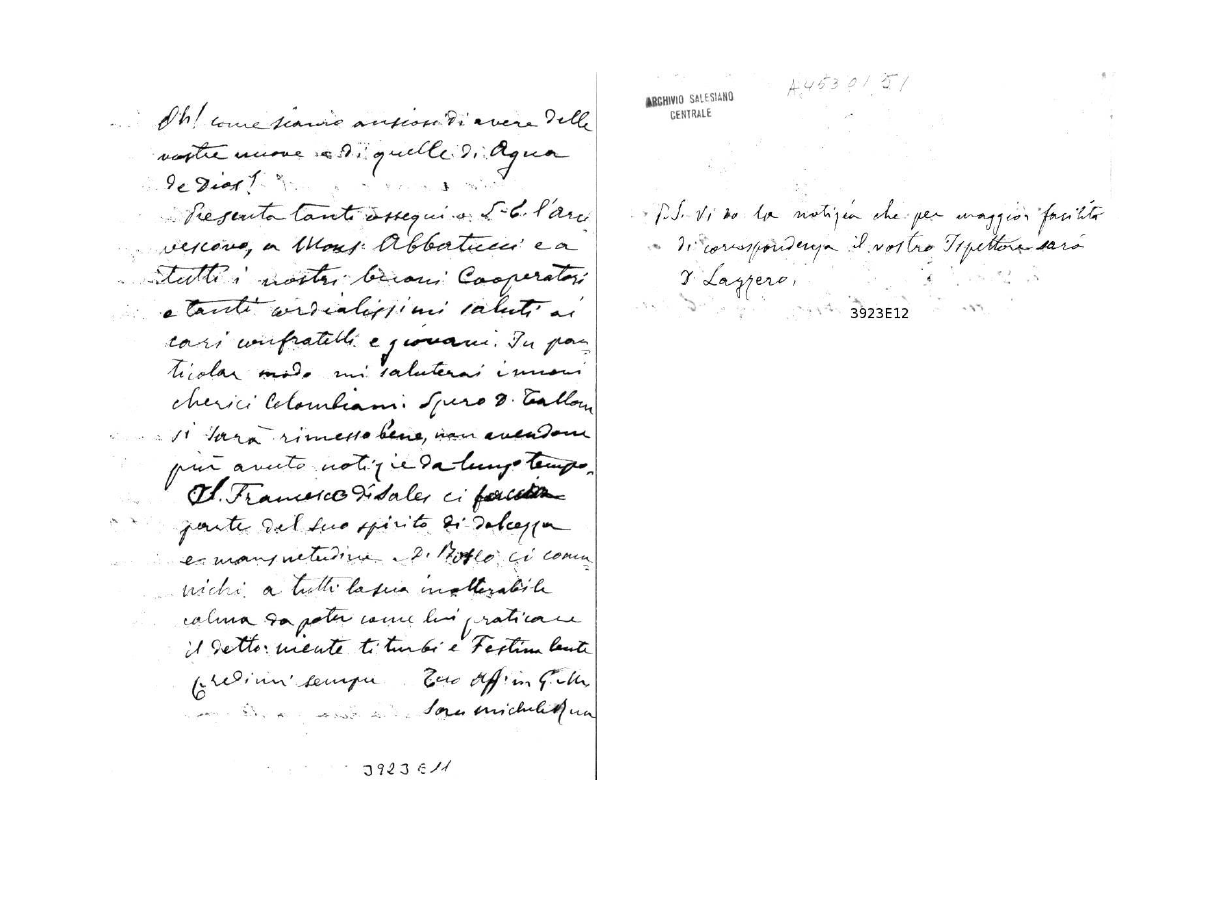 Oh! come siamo ansiosi di avere delle
vostre nuove e di quelle di Agua
de Dios!
Presenta tanti ossequi a S. E. l'arci
vescovo, a Mons. Abbatucci e a
tutti i nostri buoni Cooperatori
e tanti cordialissimi saluti ai
cari confratelli e giovani. In par=
ticolar modo mi saluterai i nuovi
cherici Colombiani. Spero D. Tallon
si sarà rimesso bene, non avendone
più avuto notizie da lungo tempo.
S. Francesco di Sales ci faccia
parte del suo spirito di dolcezza
e mansuetudine. D. Bosco ci comu=
nichi a tutti la sua inalterabile
calma da poter come lui praticare
il detto: niente ti turbi e Festina lente
Credimi sempre Tuo Aff. in G. e M.
Sac. Michele Rua
3923 E11
A4530151
ARCHIVIO SALESIANO
CENTRALE
P.S. Vi do la notizia che per maggior facilità
di corrispondenza il vostro Ispettore sarà
D. Lazzero.
3923E12